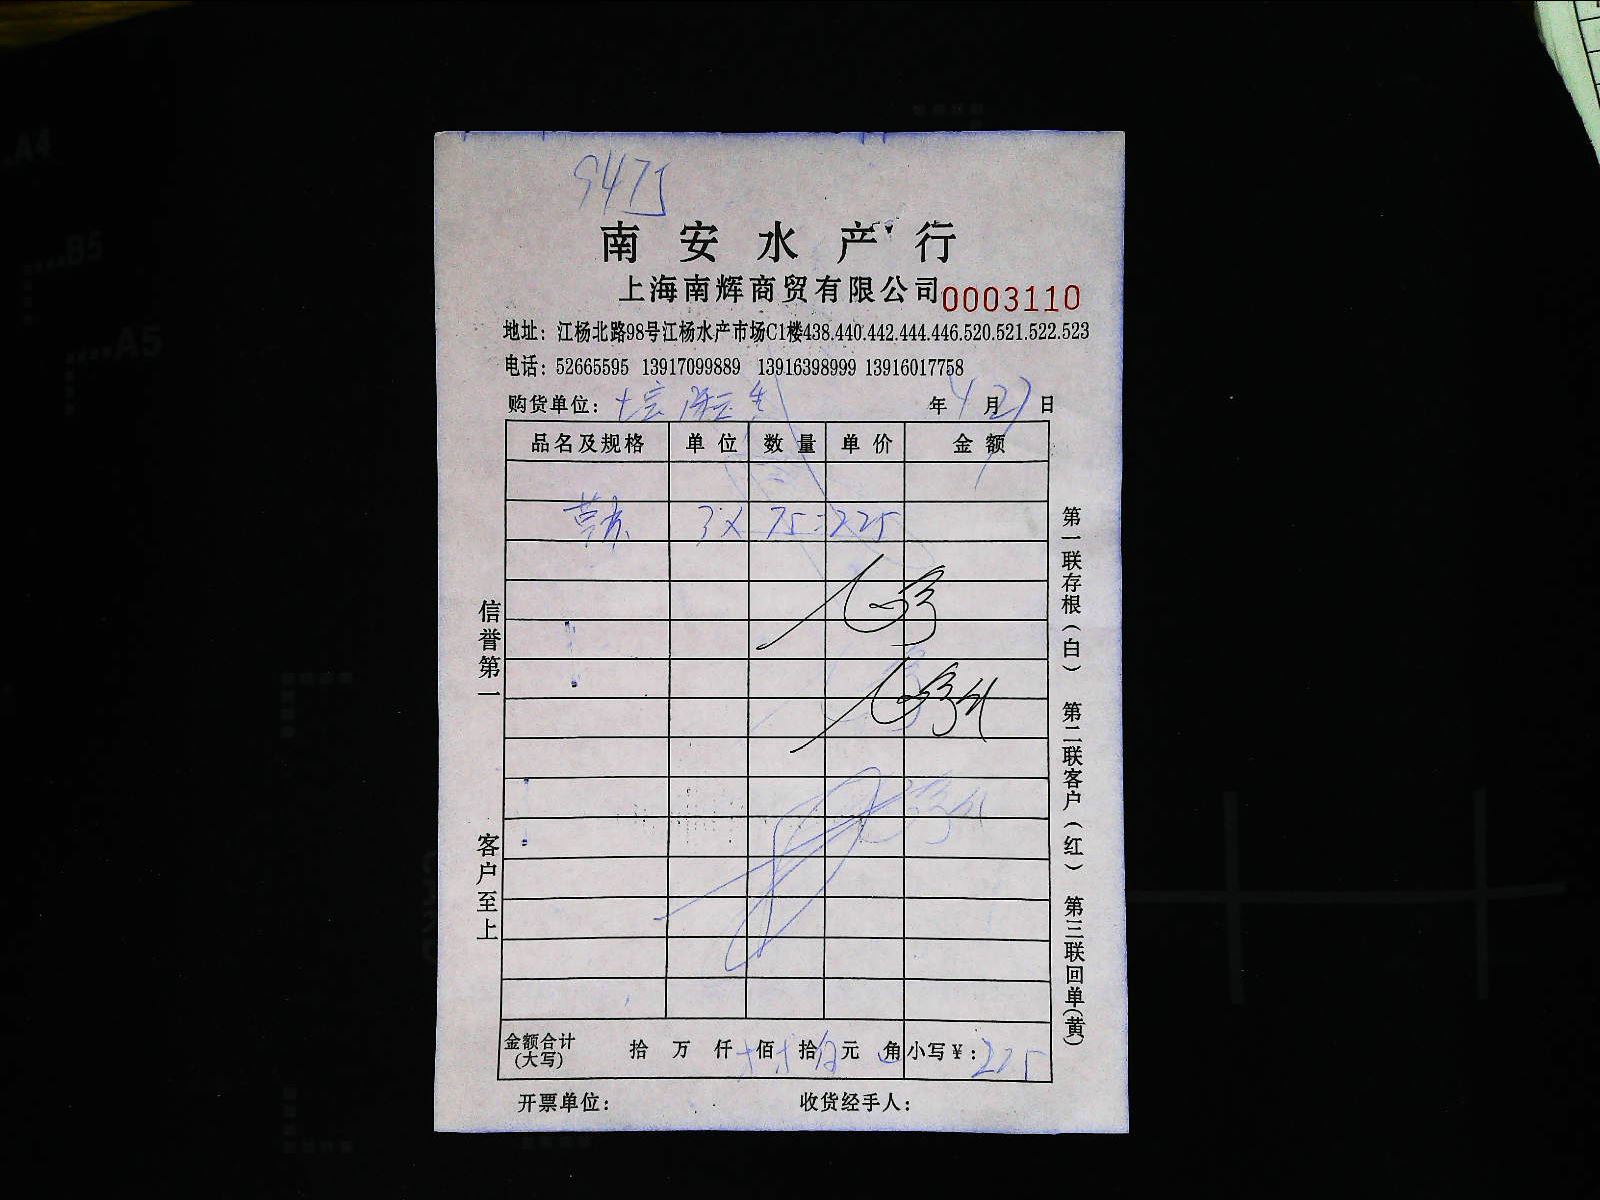 南安水产行
上海南辉商贸有限公司 0003110
地址：江杨北路98号江杨水产市场C1楼438.440.442.444.446.520.521.522.523
电话：52665595 13917099889 13916398999 13916017758
购货单位： 年 4 月 27 日
品名及规格 单位 数量 单价 金额
3× 75=225
信誉第一
客户至上
第一联存根（白） 第二联客户（红） 第三联回单（黄）
金额合计（大写） 拾 万 仟 佰 拾 元 角 小写￥：225
开票单位： 收货经手人：
A4
B5
A5